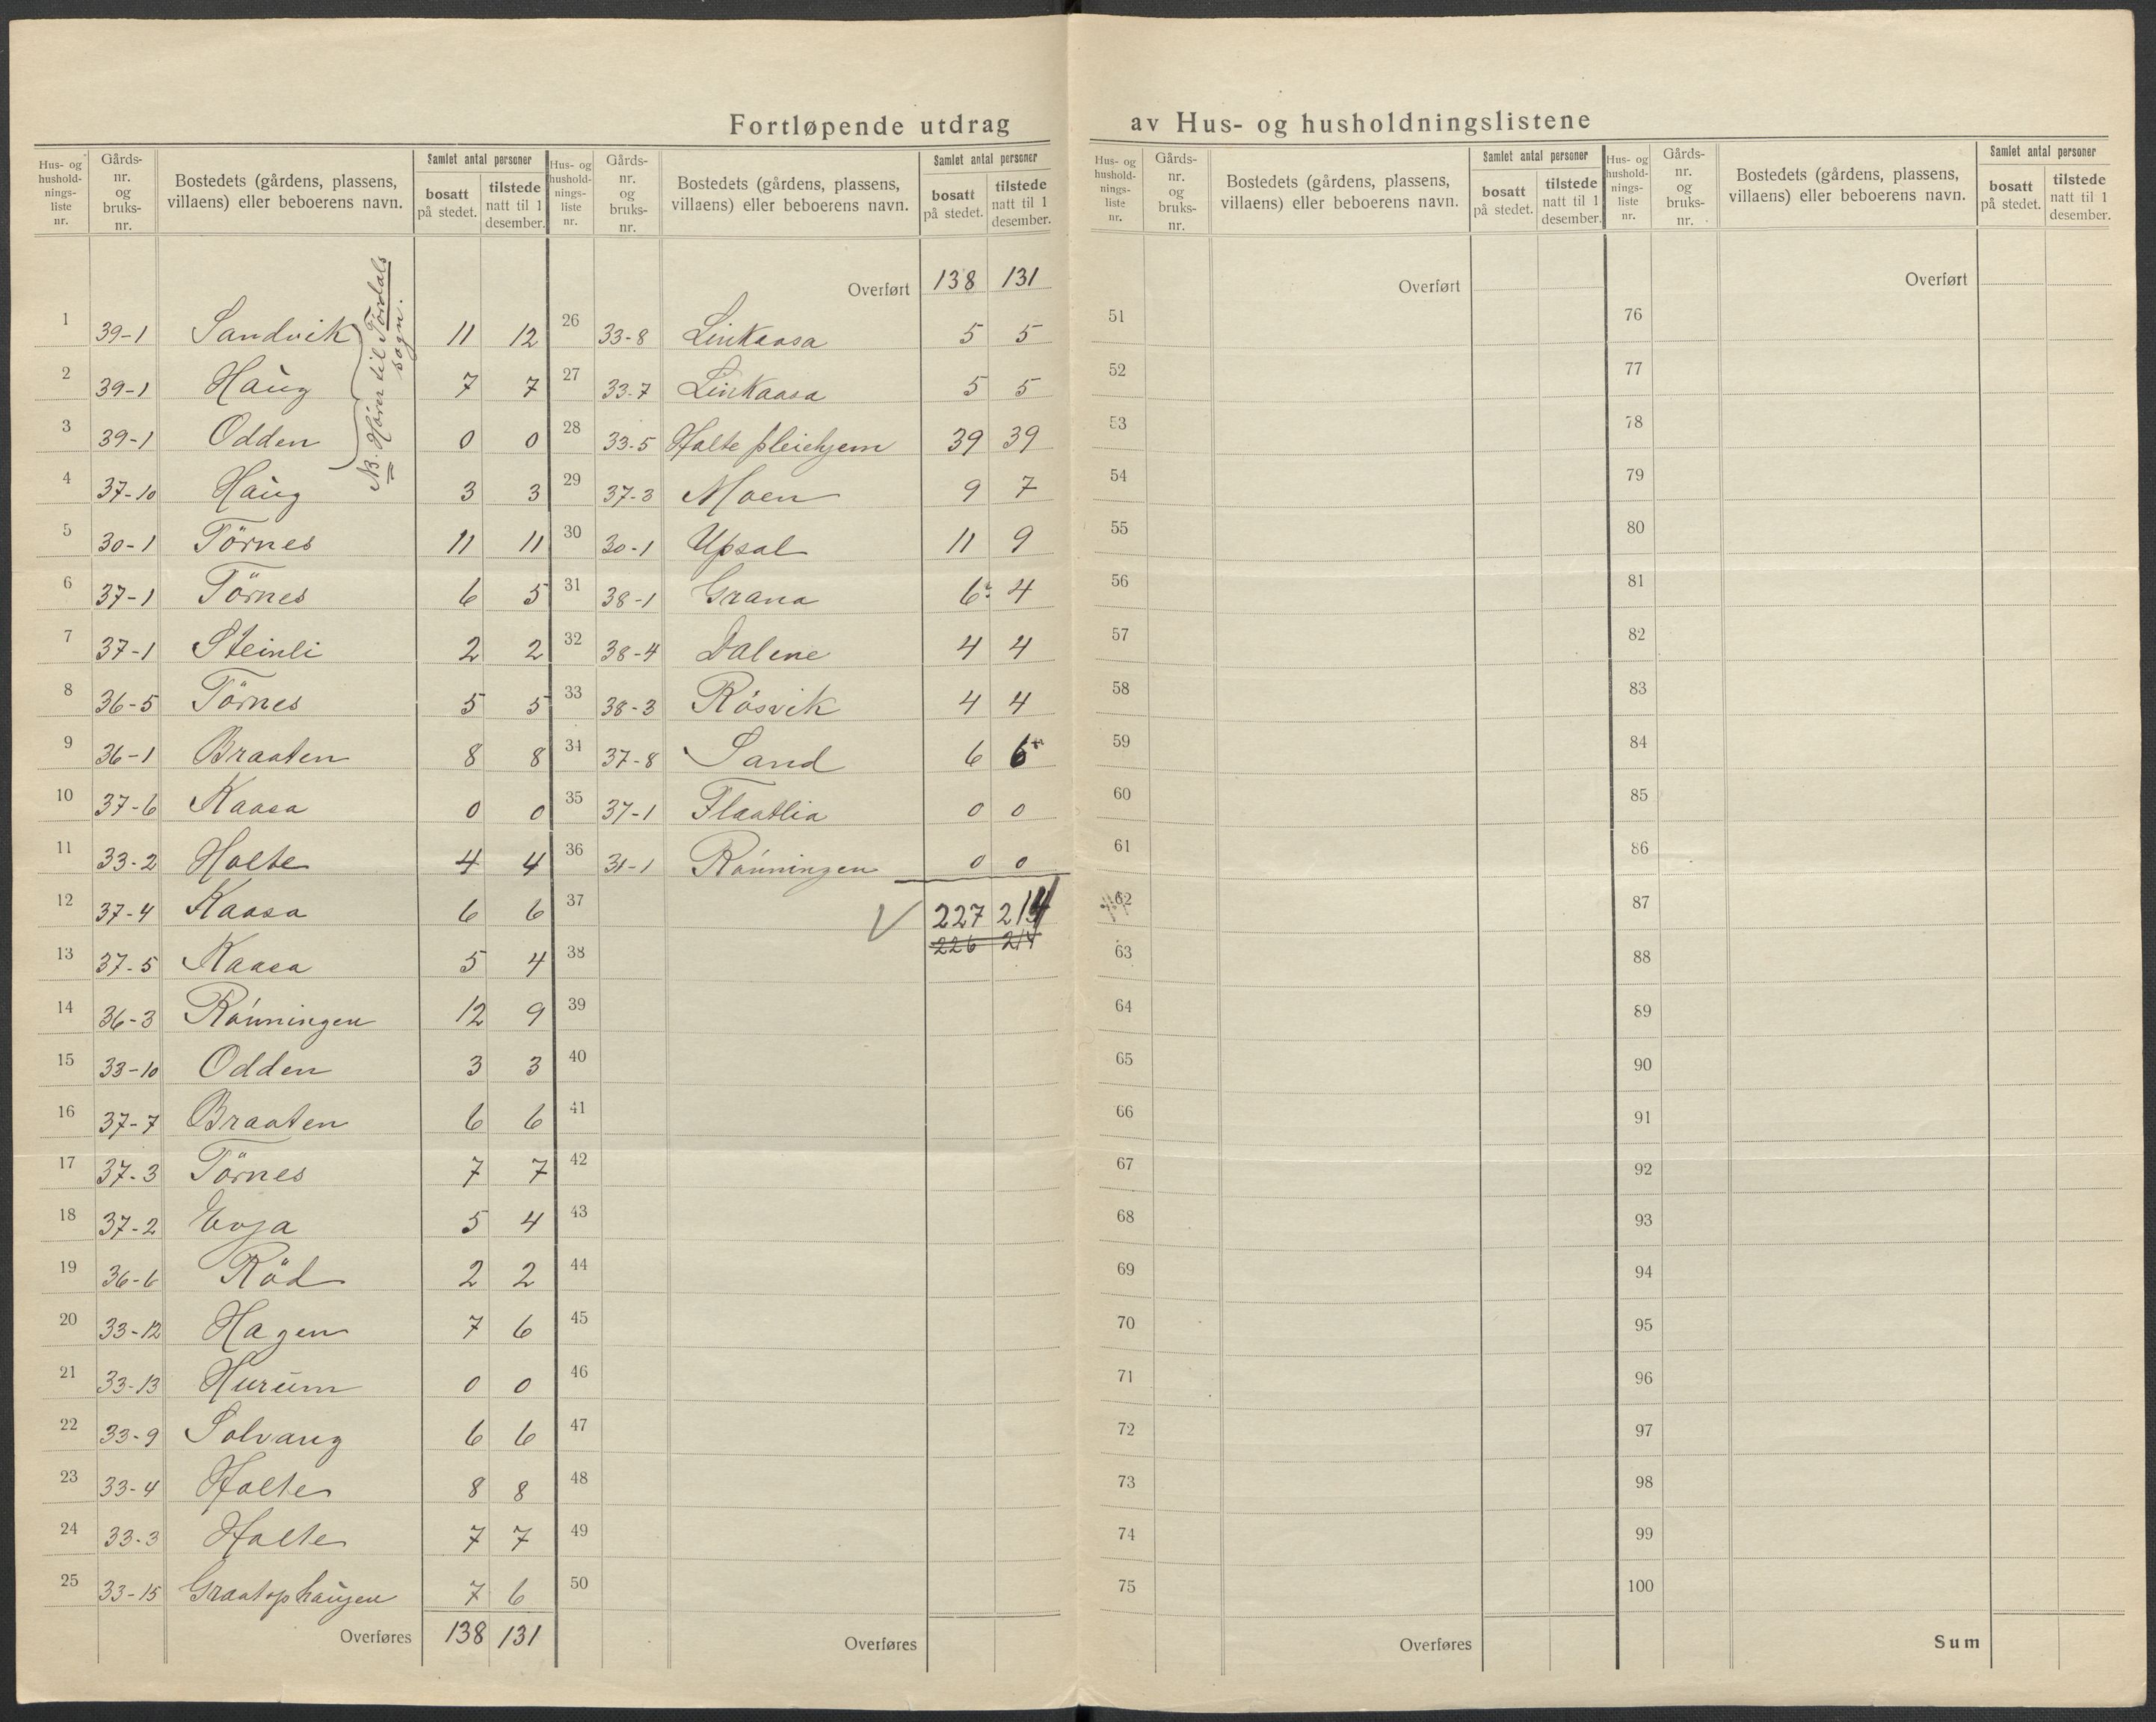 Fortløpende utdrag av Hus- og husholdningslistene
Hus- og hushold-nings-liste nr. | Gårds-nr. og bruks-nr. | Bostedets (gårdens, plassens, villaens) eller beboerens navn. | Samlet antal personer | bosatt på stedet. | tilstede natt til 1 desember.
NB. Hører til Tørdals sogn.
1 39-1 Sandvik 11 12
2 39-1 Haug 7 7
3 39-1 Odden 0 0
4 37-10 Haug 3 3
5 30-1 Törnes 11 11
6 37-1 Törnes 6 5
7 37-1 Steinli 2 2
8 36-5 Törnes 5 5
9 36-1 Braaten 8 8
10 37-6 Kaasa 0 0
11 33-2 Holte 4 4
12 37-4 Kaasa 6 6
13 37-5 Kaasa 5 4
14 36-3 Rónningen 12 9
15 33-10 Odden 3 3
16 37-7 Braaten 6 6
17 37-3 Törnes 7 7
18 37-2 Evja 5 4
19 36-6 Röd 2 2
20 33-12 Hagen 7 6
21 33-13 Hurum 0 0
22 33-9 Solvang 6 6
23 33-4 Holte 8 8
24 33-3 Holte 7 7
25 33-15 Graatophaugen 7 6
Overføres 138 131
Hus- og hushold-nings-liste nr. | Gårds-nr. og bruks-nr. | Bostedets (gårdens, plassens, villaens) eller beboerens navn. | Samlet antal personer | bosatt på stedet. | tilstede natt til 1 desember.
Overført 138 131
26 33-8 Linkaasa 5 5
27 33-7 Linkaasa 5 5
28 33-5 Holte pleiehjem 39 39
29 37-3 Moen 9 7
30 30-1 Upsal 11 9
31 38-1 Grana 6 4
32 38-4 Dalene 4 4
33 38-3 Rósvik 4 4
34 37-8 Sand 6 6
35 37-1 Flaatlia 0 0
36 31-1 Rónningen 0 0
37 227 214
38 226 214
39
40
41
42
43
44
45
46
47
48
49
50
Overføres
Hus- og hushold-nings-liste nr. | Gårds-nr. og bruks-nr. | Bostedets (gårdens, plassens, villaens) eller beboerens navn. | Samlet antal personer | bosatt på stedet. | tilstede natt til 1 desember.
Overført
51
52
53
54
55
56
57
58
59
60
61
62
63
64
65
66
67
68
69
70
71
72
73
74
75
Overføres
Hus- og hushold-nings-liste nr. | Gårds-nr. og bruks-nr. | Bostedets (gårdens, plassens, villaens) eller beboerens navn. | Samlet antal personer | bosatt på stedet. | tilstede natt til 1 desember.
Overført
76
77
78
79
80
81
82
83
84
85
86
87
88
89
90
91
92
93
94
95
96
97
98
99
100
Sum